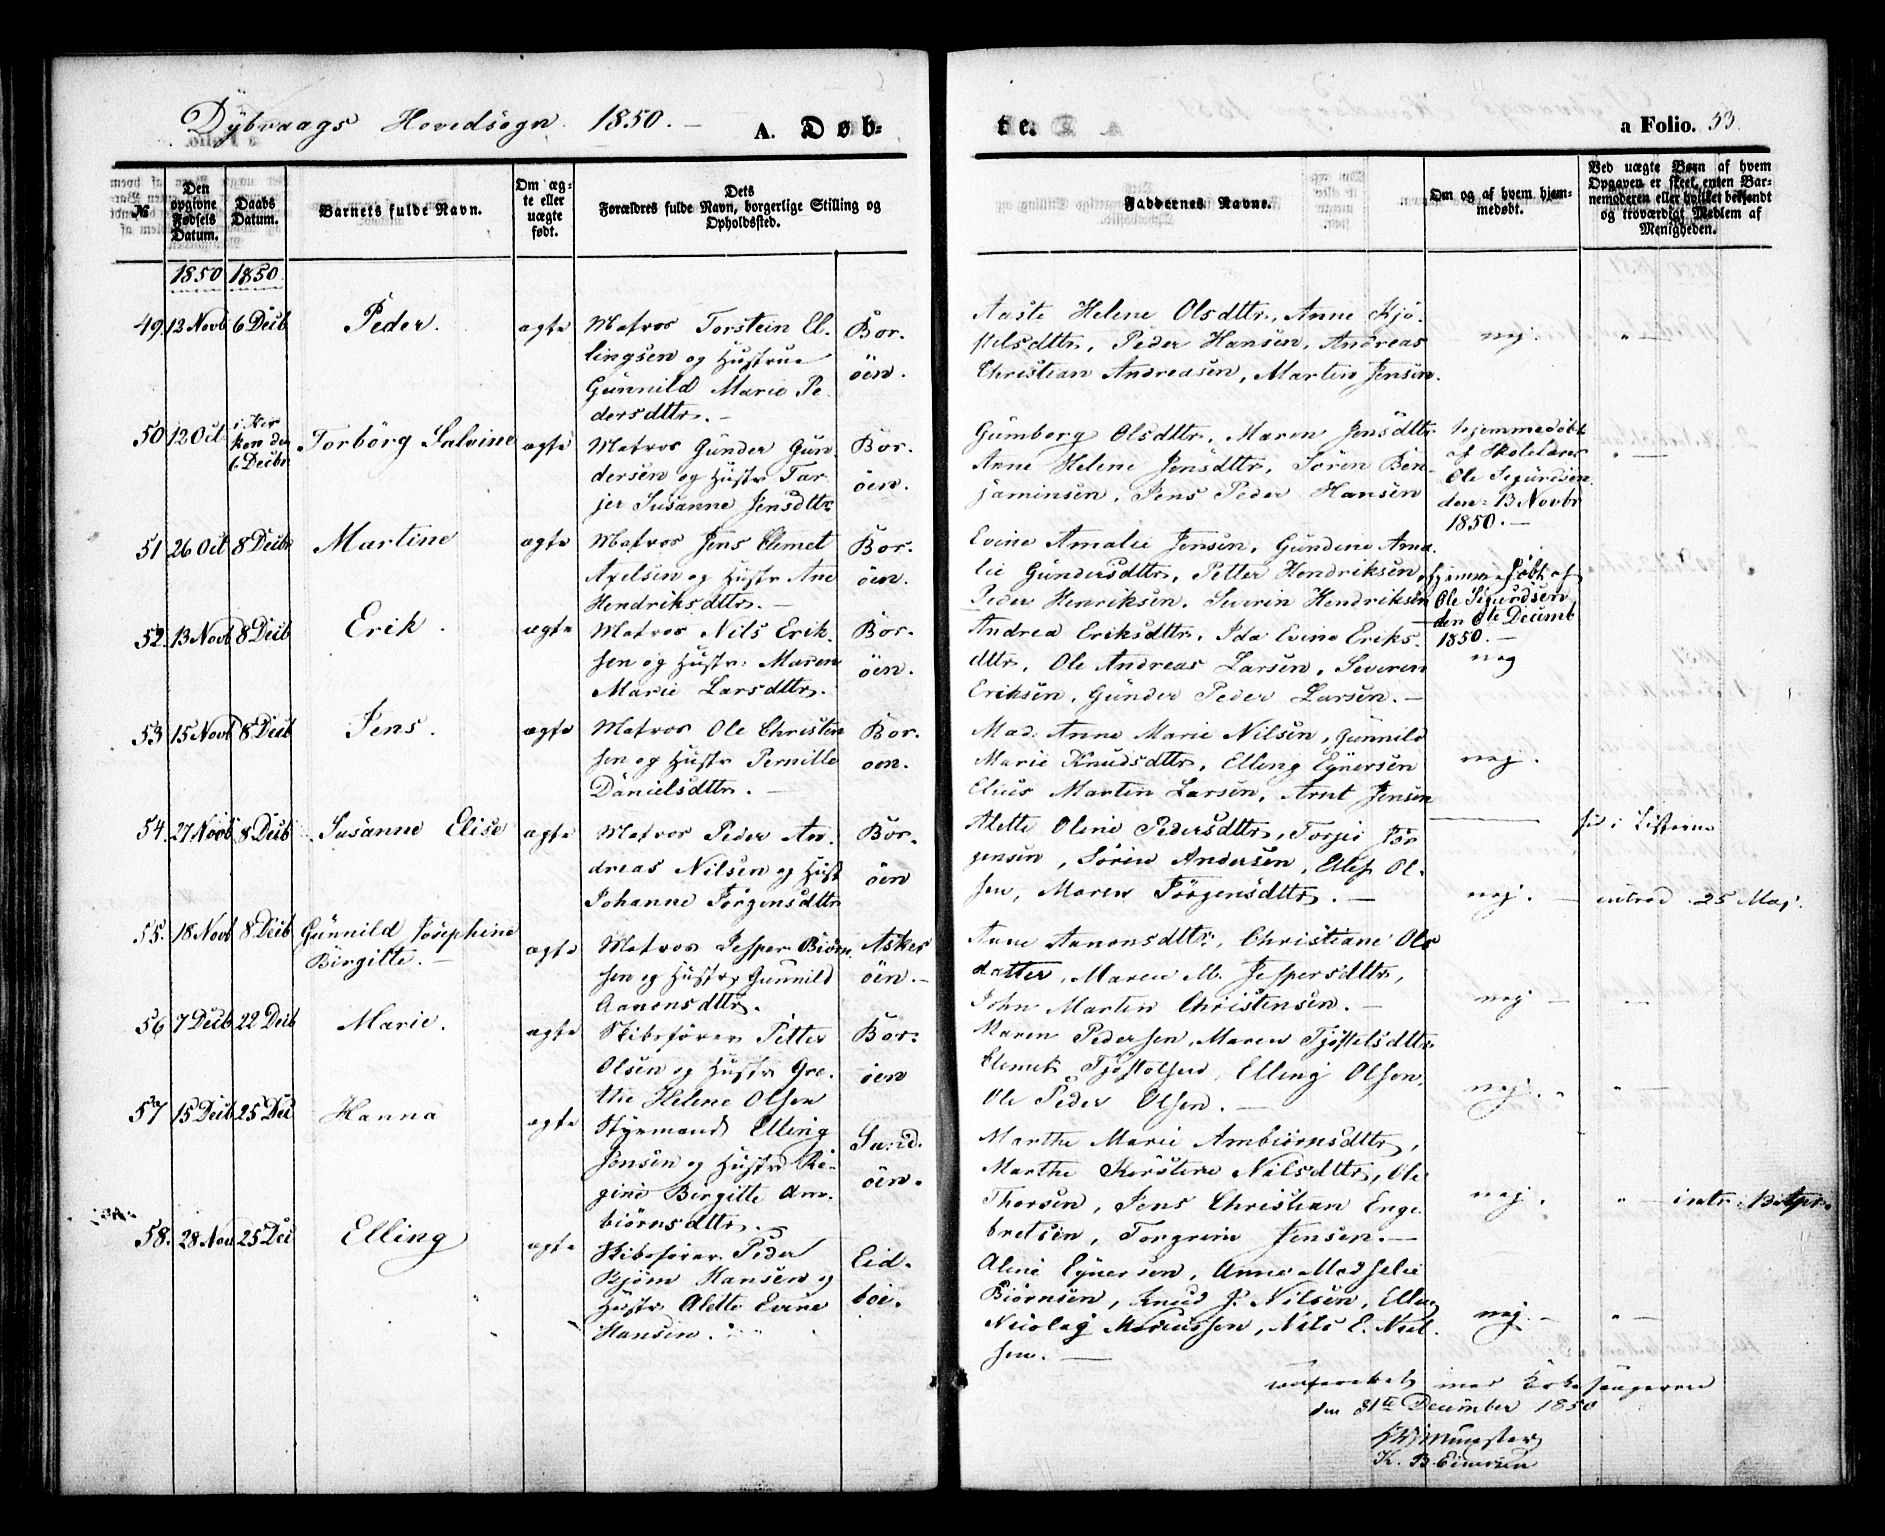 Dÿbvaags Hovedsogn 1850. — A. Døb-
te. a Folio. 53.
№ Den opgivne Fødsels Datum. Daabs Datum. Barnets fulde Navn. Om ægte eller uægte født. Dets Forældres fulde Navn, borgerlige Stilling og Opholdssted. Faddernes Navne. Om og af hvem hjemmedøbt. Ved uægte Børn af hvem Opgaven er skeet, enten Barnemoderen eller hvilket bekjendt og troværdigt Medlem af Menigheden.
1850 1850
49. 12 Novb 6 Decb Peder. ægte Matros Torstein El-
lingsen og Hustrue
Gunnild Marie Pe-
dersdttr. —
Bor-
öen.
Aaste Helene Olsdttr, Anne Kjö-
stelsdttr, Peder Hansen, Andreas
Christian Andreasen, Martin Jensen.
nej. " —
50. 12 Oct i Kir
ken den
6 Decbr
Torbörg Salvine ægte Matros Gunder Gun
dersen og Hustr Tar-
jer Susanne Jensdttr
Bor-
öen.
Gumborg Olsdttr, Maren Jensdttr
Anne Helene Jensdttr, Sören Ben-
jaminsen, Jens Peder Hansen
Hjemmedöbt
af Skolelærer
Ole Sigurdsen
den 13 Novbr
1850. —
" —
51 26 Oct 8 Decbr Martine ægte Matros Jens Clemet
Axelsen og Hustr Ane
Hendriksdttr. —
Bor-
öen.
Evine Amalie Jensen, Gundine Ama-
lie Gundersdttr, Petter Hendriksen,
Peder Henriksen, Severin Hendriksen
hjemmedöbt af
Ole Sigurdsen
den 6te Decemb
1850. —
52. 13 Novb 8 Decb Erik. ægte Matros Nils Erik-
sen og Hustr: Maren
Marie Larsdttr.
Bor-
öen.
Andrea Eriksdttr, Ida Evine Eriks-
dttr, Ole Andreas Larsen, Severin
Eriksen, Gunder Peder Larsen. —
nej
53 15 Novb 8 Decb Jens. ægte Matros Ole Christen
sen og Hustr Pernille
Danielsdttr. —
Bor-
oen.
Mad. Anne Marie Nilsen, Gunnild
Marie Knudsdttr, Elling Eÿnersen
Elius Martin Larsen, Arnt Jensen
nej.
54. 27 Novb 8 Decb Susanne Elise ægte Matros Peder An-
dreas Nilsen og Hust
Johanne Jörgensdttr
Bor-
öen
Alette Oline Pedersdttr, Torjei Jör
gensen, Sören Andersen, Ellef Ol-
sen, Maren Jörgensdttr. —
nej. — i Listerne
introd 25 Maj.
55. 18 Novb 8 Decb Gunnild Josephine
Birgitte. —
ægte Matros Jesper Biörn-
sen og Hustr Gunnild
Aanonsdttr.
Asker
öen. —
Anne Aanonsdttr, Christiane Ols
datter, Maren M. Jespersdttr,
John Martin Christensen. —
nej — —
56 7 Decb 22 Decb Marie. ægte Skibsförer Petter
Olsen og Hustr Gre-
the Helene Olsen
Bor-
öen
Maren Pedersen, Maren Tjöstelsdttr
Clemet Tjöstolsen, Elling Olsen.
Ole Peder Olsen. —
nej. " —
57 15 Decb 25 Dec Hanna ægte Styrmand Elling
Jonsen og Hustr Re-
gine Birgitte Am-
biörnsdttr.
Sand-
öen.
Marthe Marie Ambiörnsdttr,
Marthe Kirstine Nilsdttr, Ole
Thorsen, Jens Christian Enge
bretsen, Torgrim Jensen. —
nej. " — intr. 13 Apr.
58. 28 Nov 25 Dec Elling ægte Skibsförer Peder
Bjørn Hansen og
Hustr Alette Evine
Hansen.
Eid-
boe.
Aline Eynersen, Anne Madselie
Biörnsen, Knud P. Nilsen, Elling
Nicolaj Mariussen, Nils E. Niel-
sen. —
nej. — " —
confereret med Kirkesangeren
den 31te December 1850
Münster
K. B. Einersen